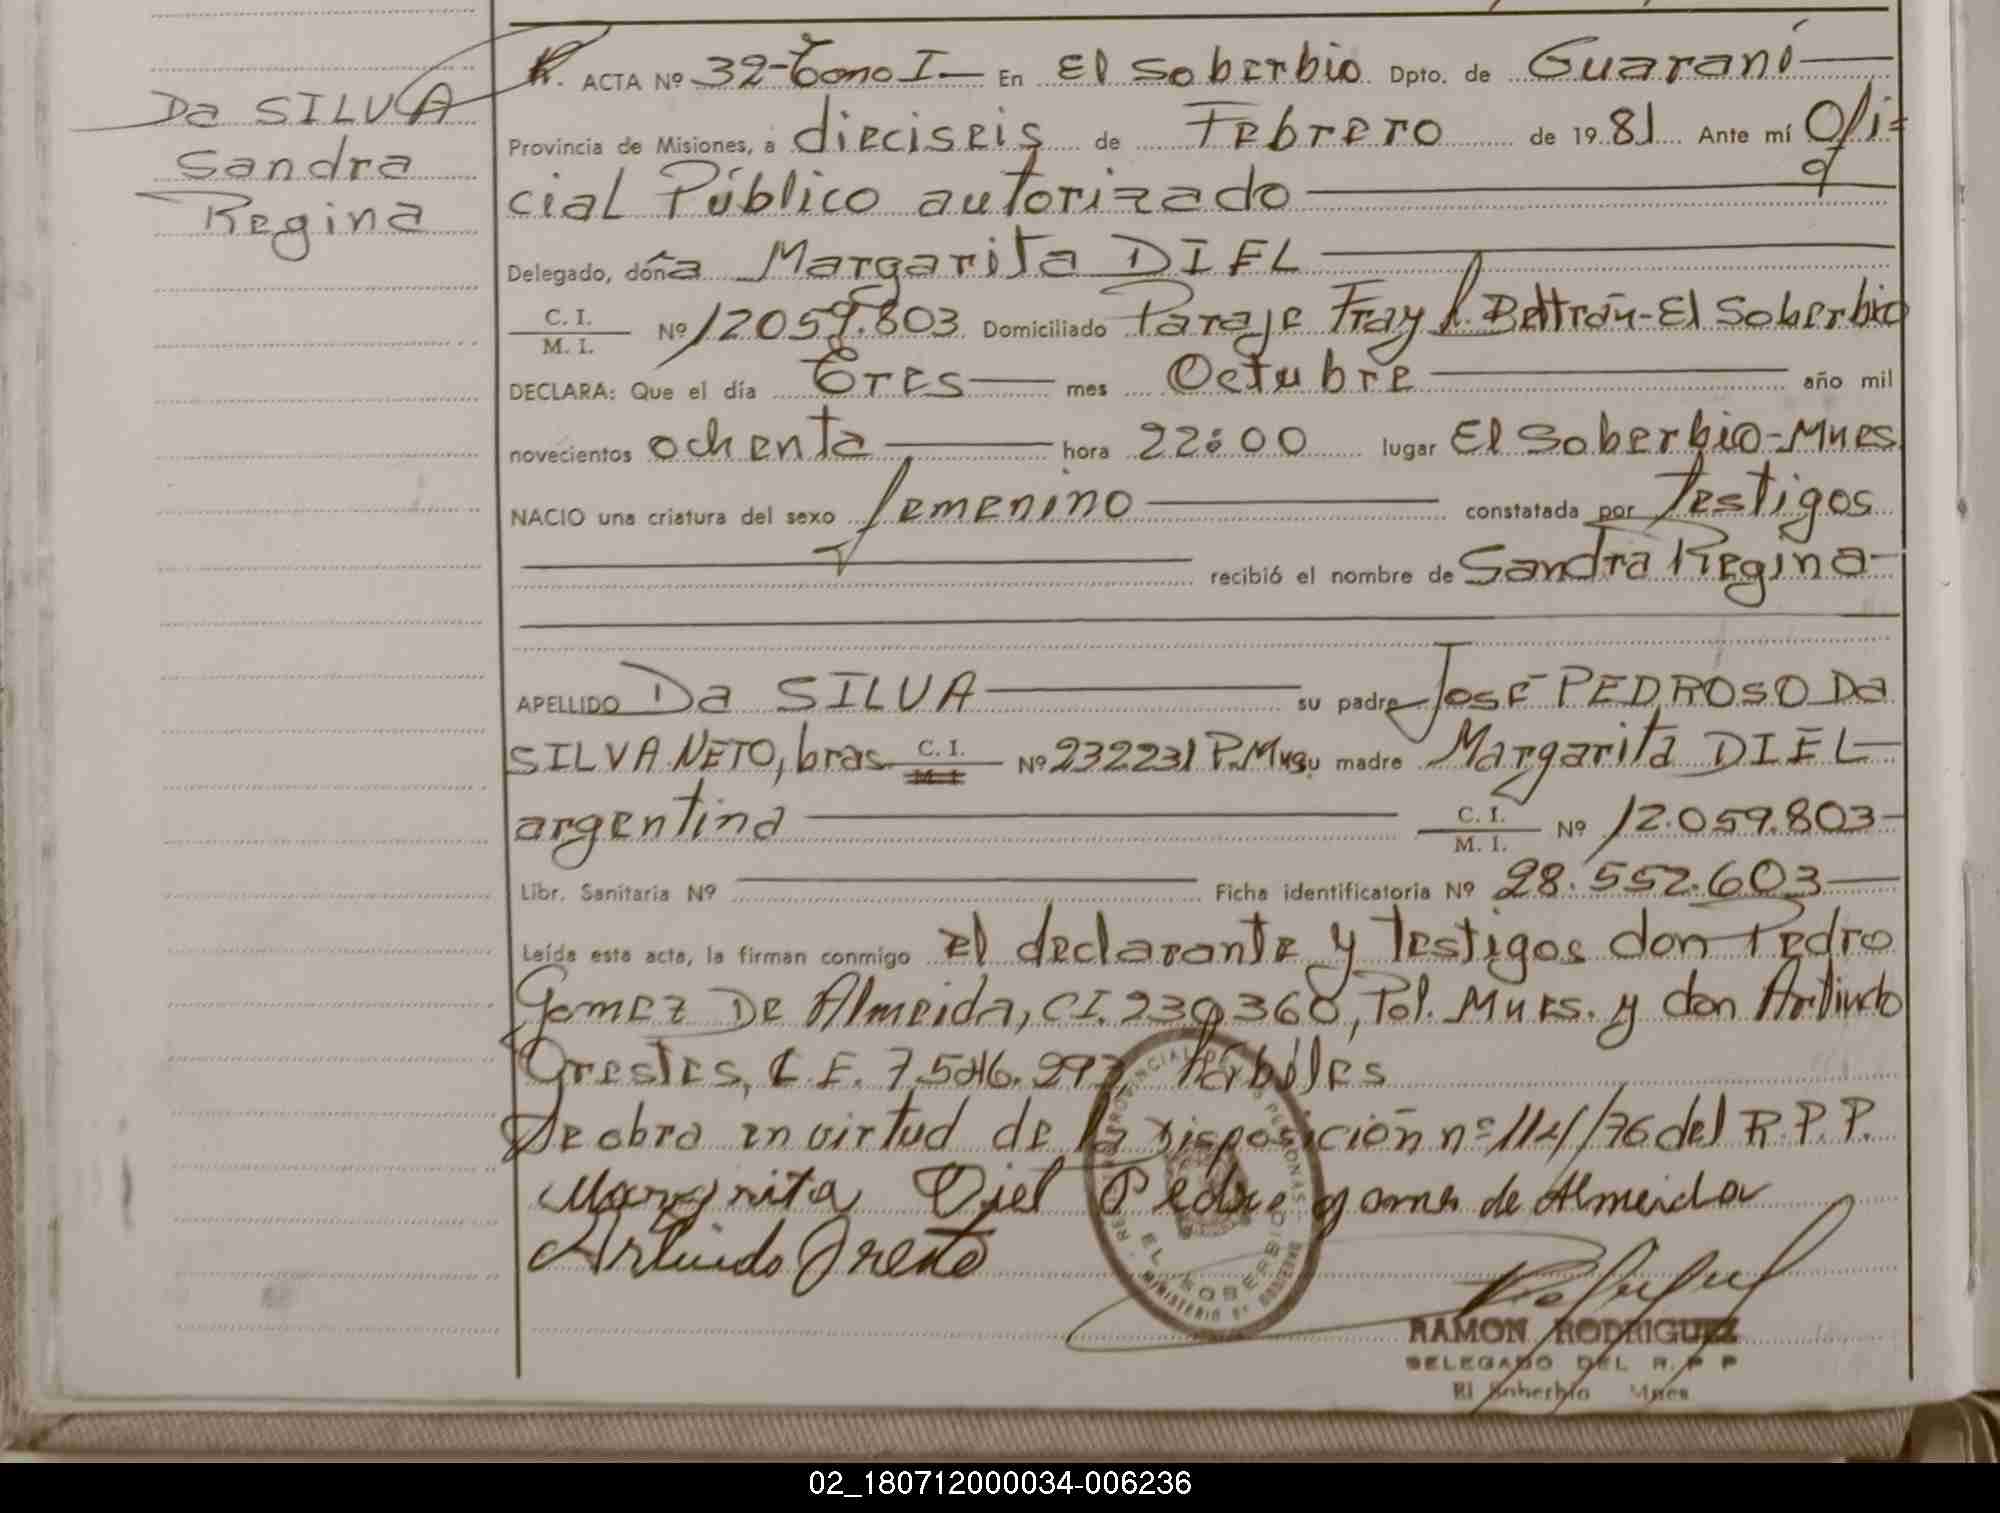 Da SILVA
Sandra
Regina
ACTA Nº 32-Tomo I— En El Soberbio Dpto. de Guaraní—
Provincia de Misiones, a dieciseis de Febrero de 1981 Ante mí Ofi=
cial Público autorizado
Delegado, doña Margarita DIEL
C. I.
M. I. Nº 12059.803 Domiciliado Paraje Fray L. Beltrán-El Soberbio
DECLARA: Que el día Tres— mes Octubre— año mil
novecientos ochenta— hora 22:00 lugar El Soberbio-Mnes
NACIO una criatura del sexo femenino— constatada por Testigos
recibió el nombre de Sandra Regina-
APELLIDO Da SILVA— su padre José PEDROSO Da
SILVA NETO, bras C. I. M. I. Nº 232231 P.Mns su madre Margarita DIEL—
argentina— C. I. M. I. Nº 12.059.803-
Libr. Sanitaria Nº — Ficha identificatoria Nº 28.552.603—
Leída esta acta, la firman conmigo el declarante y Testigos don Pedro
Gomez De Almeida, CI. 239360, Pol. Mnes. y don Arlindo
Orestes, C.F. 7.546.297 Hábiles
Se obra en virtud de la Disposición nº 114/76 del R.P.P.
Margarita Diel Pedro gomes de Almeida
Arlindo Oreste
REG. PROVINCIAL DE LAS PERSONAS
EL SOBERBIO
MINISTERIO DE GOBIERNO
RAMON RODRIGUEZ
DELEGADO DEL R. P P
El Soberbio Mnes
02_180712000034-006236